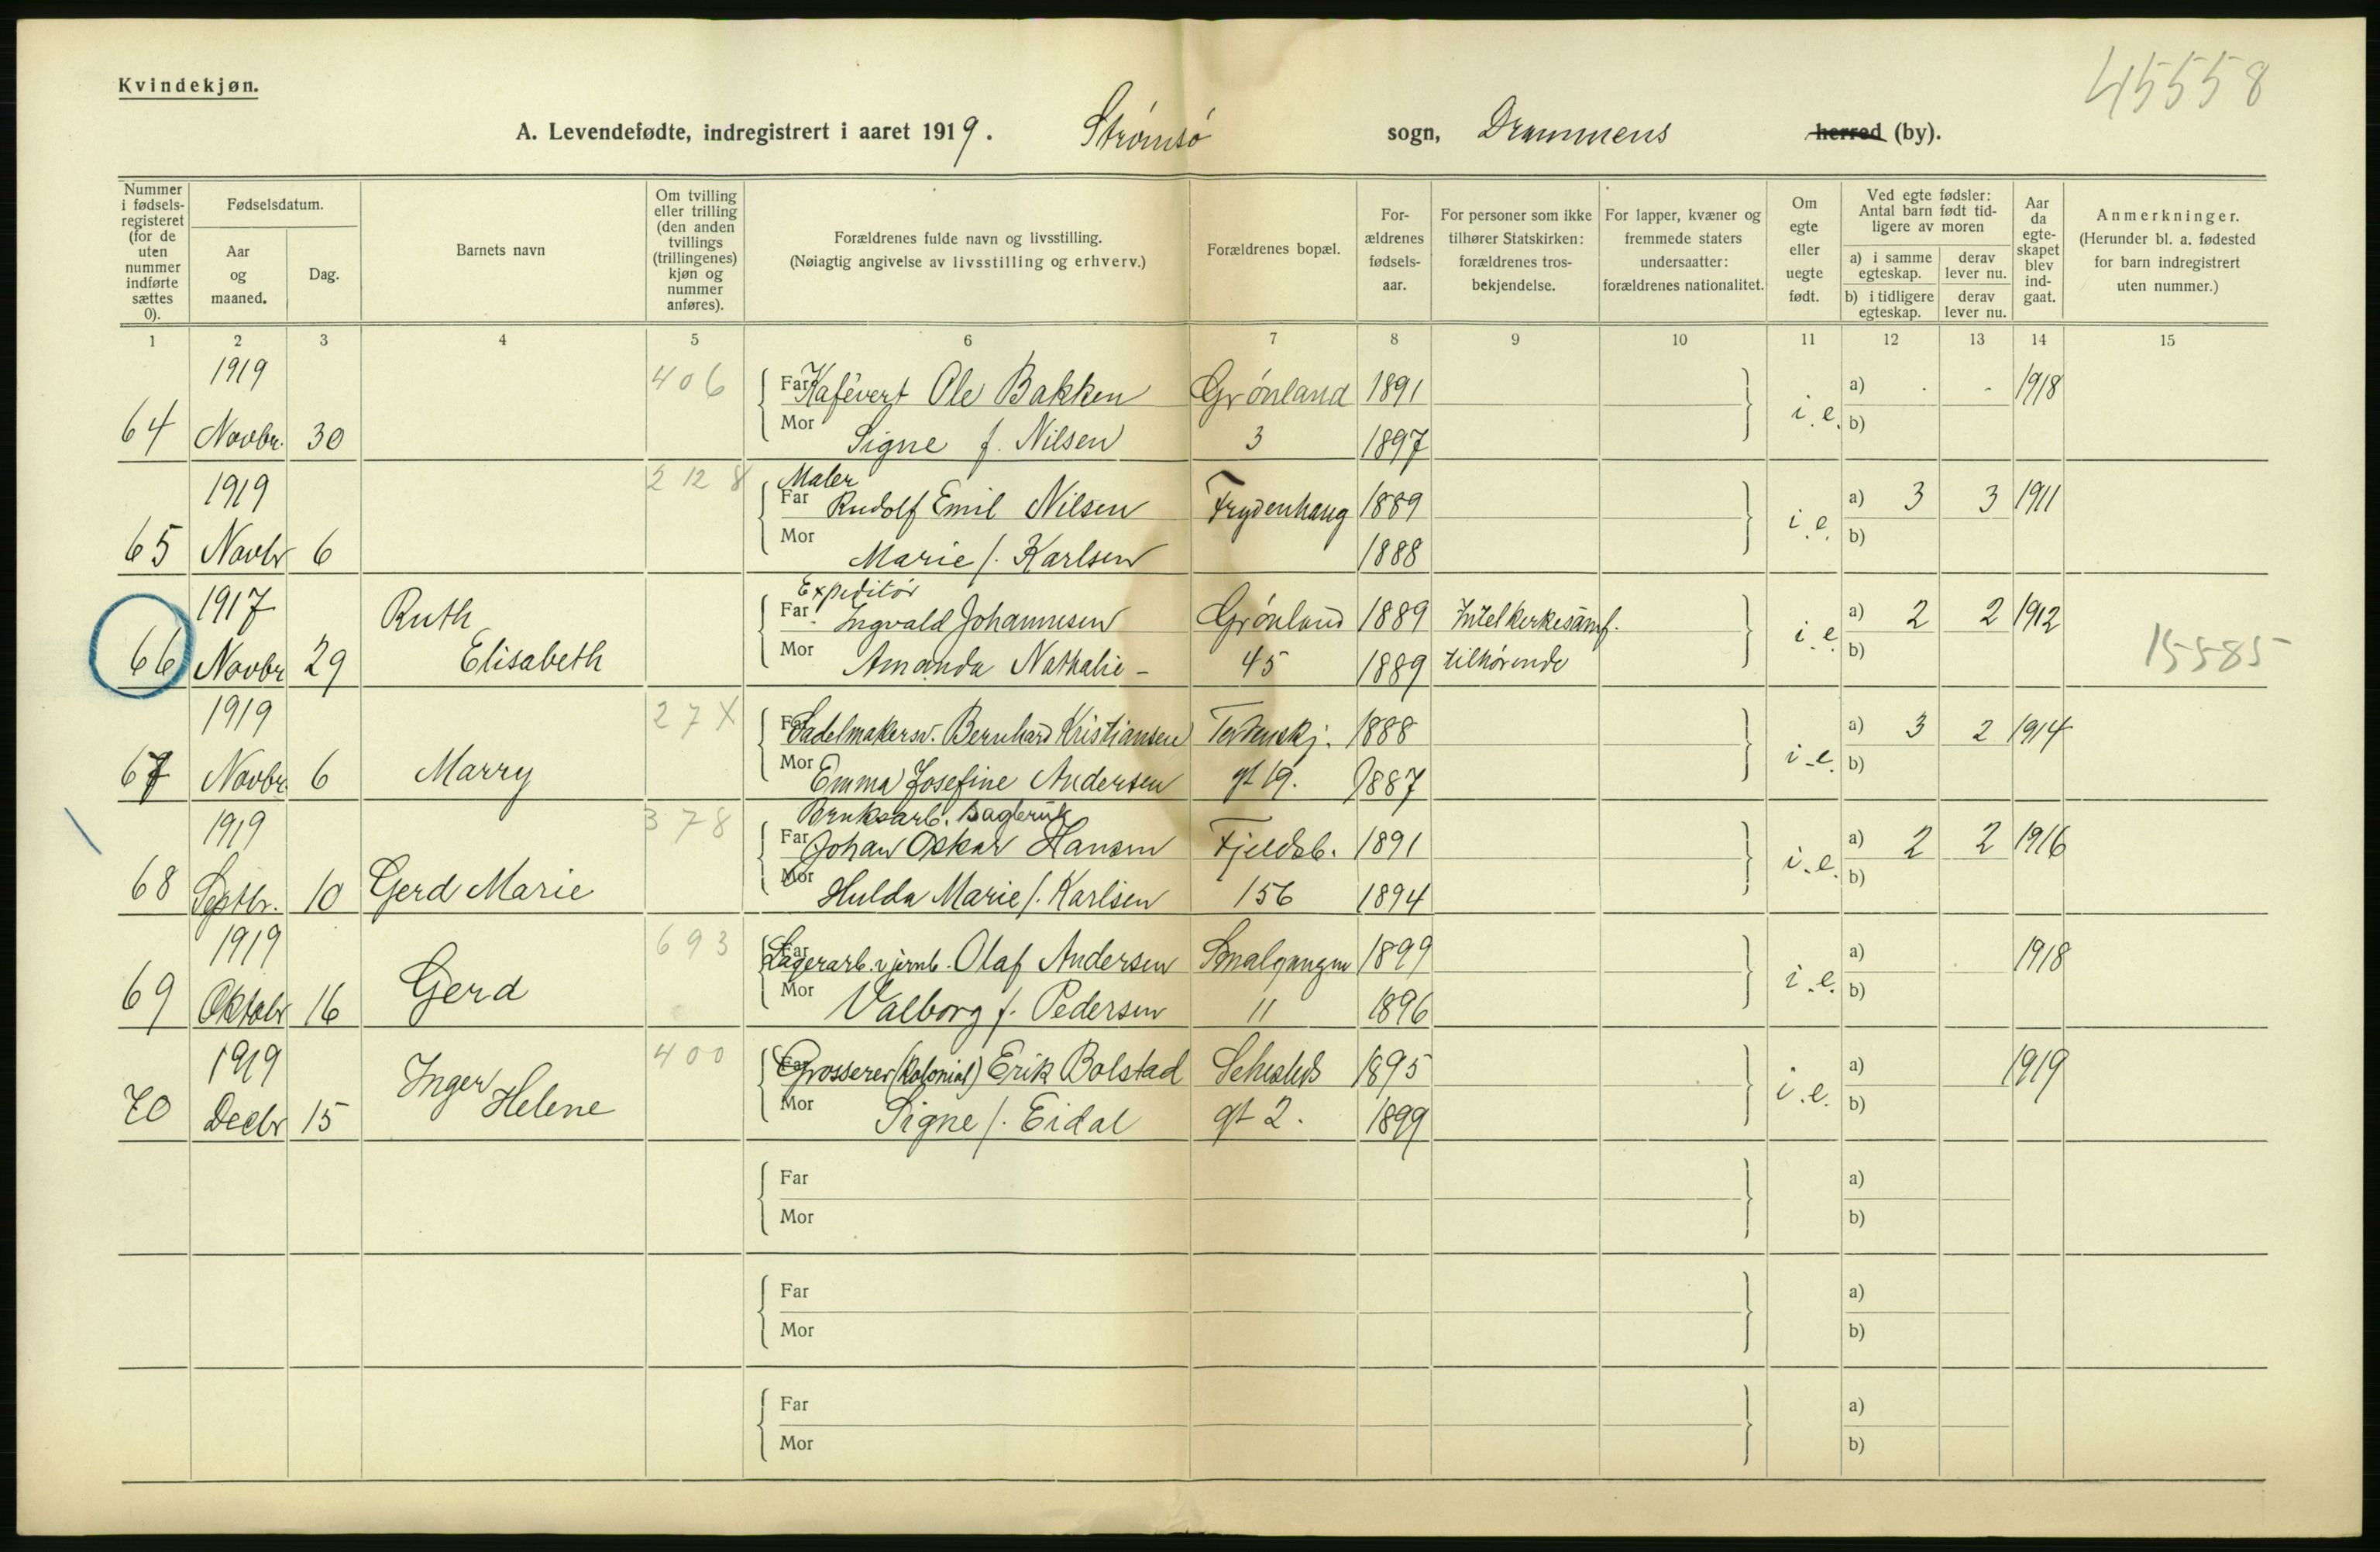 45558
Kvindekjøn.
A. Levendefødte, indregistrert i aaret 1919. Strømsø sogn, Drammens herred (by).
Nummer i fødsels-registeret (for de uten nummer indførte sættes 0).
Fødselsdatum.
Aar og maaned.
Dag.
Barnets navn
Om tvilling eller trilling (den anden tvillings (trillingenes) kjøn og nummer anføres).
Forældrenes fulde navn og livsstilling.
(Nøiagtig angivelse av livsstilling og erhverv.)
Forældrenes bopæl.
For-ældrenes fødsels-aar.
For personer som ikke tilhører Statskirken: forældrenes tros-bekjendelse.
For lapper, kvæner og fremmede staters undersaatter: forældrenes nationalitet.
Om egte eller uegte født.
Ved egte fødsler: Antal barn født tid-ligere av moren
a) i samme egteskap.
derav lever nu.
b) i tidligere egteskap.
derav lever nu.
Aar da egte-skapet blev ind-gaat.
Anmerkninger.
(Herunder bl. a. fødested for barn indregistrert uten nummer.)
1 2 3 4 5 6 7 8 9 10 11 12 13 14 15
1919 406 Far Kafévert Ole Bakken Grønland 1891 a) . - 1918
64 Novbr. 30 Mor Signe f. Nilsen 3 1897 i.e. b)
1919 2 12 8 Maler
Far Rudolf Emil Nilsen Frydenhaug 1889 a) 3 3 1911
65 Novbr 6 Mor Marie f. Karlsen 1888 i.e. b)
1917 Ruth Expeditør
Far Ingvald Johannesen Grønland 1889 Intet kirkesamf. a) 2 2 1912
66 Novbr 29 Elisabeth Mor Amanda Nathalie - 45 1889 tilhørende i.e. b) 15585
1919 27X Far Sadelmakersv. Bernhard Kristiansen 1888 a) 3 2 1914
67 Novbr. 6 Marry Mor Emma Josefine Andersen gt 19. 1887 i.e. b)
1919 378 Bruksarb.
Far Johan Oskar Hansen Fjeldsb. 1891 a) 2 2 1916
68 Septbr. 10 Gerd Marie Mor Hulda Marie f. Karlsen 156 1894 i.e. b)
1919 693 Far Lagerarb. v jernb. Olaf Andersen Smalgangen 1899 a) 1918
69 Oktobr 16 Gerd Mor Valborg f. Pedersen 11 1896 i.e. b)
1919 400 Far Grosserer (Kolonial) Erik Bolstad Schesteds 1895 a) 1919
70 Decbr 15 Inger Helene Mor Signe f. Eidal gt 2. 1899 i.e. b)
Far a)
Mor b)
Far a)
Mor b)
Far a)
Mor b)